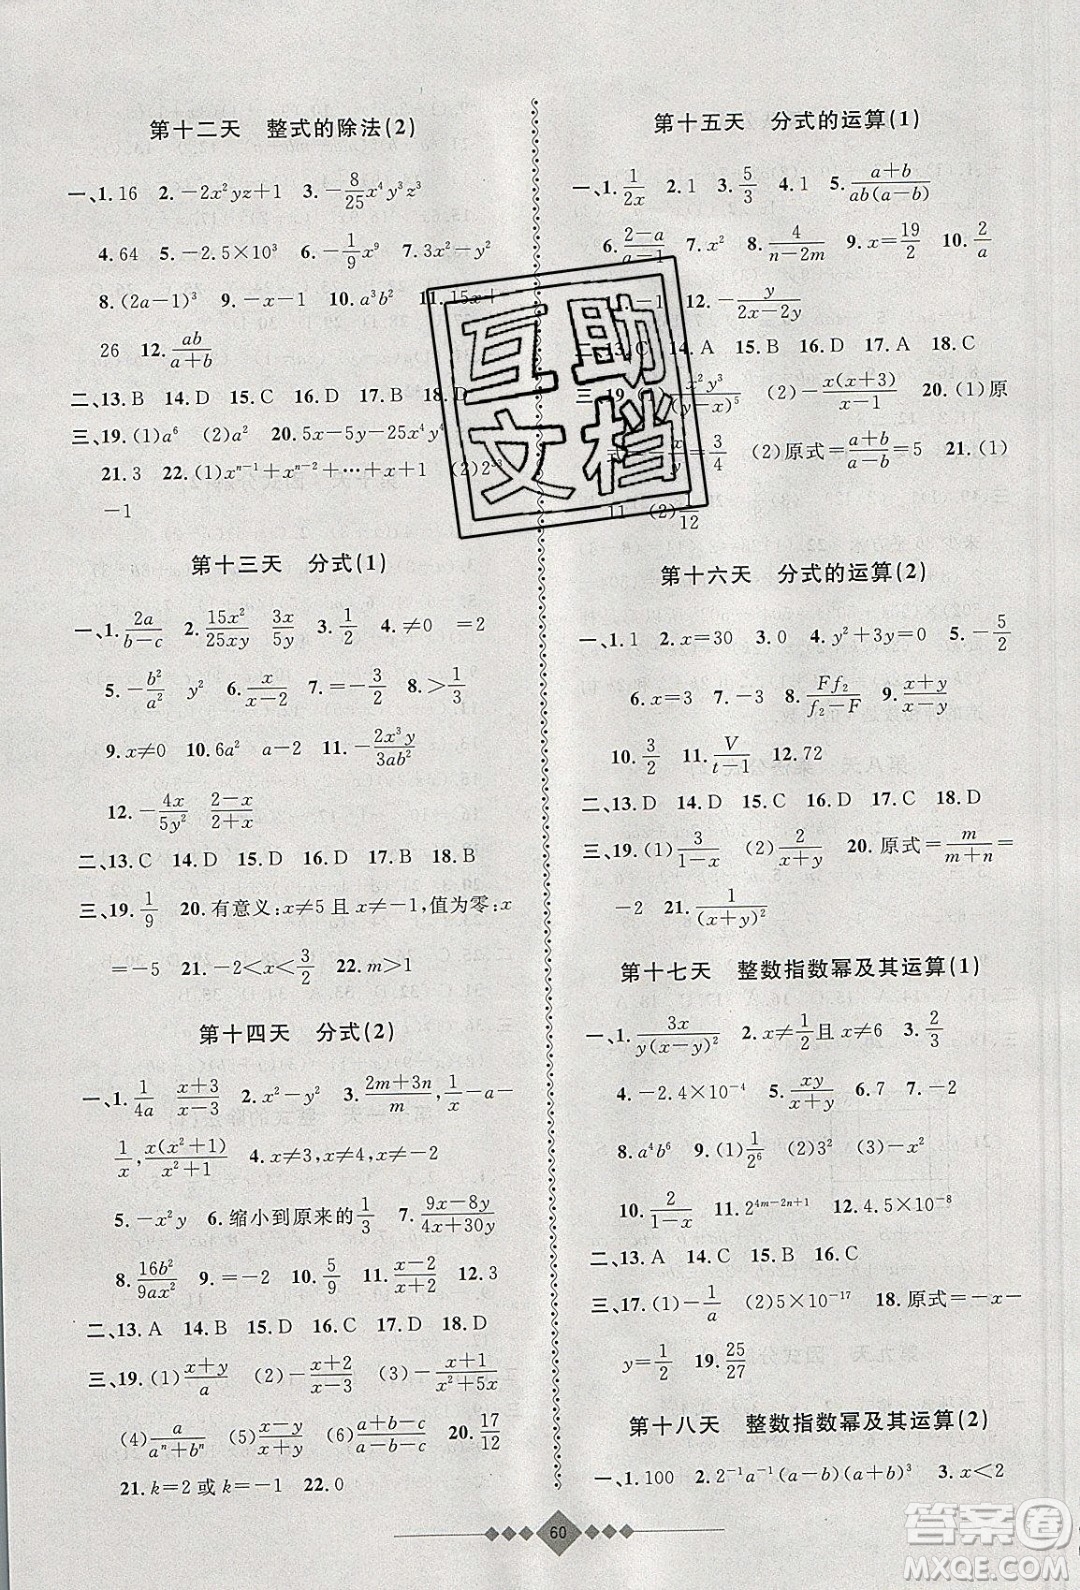 第十二天　整式的除法(2)
一、1. 16　2. −2x²yz+1　3. −8/25 x⁴y³z³
4. 64　5. −2.5×10³　6. −1/9 x⁹　7. 3x−y²
8. (2a−1)³　9. −x−1　10. a³b⁵　11. 15x+
26　12. ab/(a+b)
二、13. B　14. D　15. D　16. B　17. B　18. D
三、19. (1)a⁶　(2)a²　20. 5x−5y−25x⁴y⁴
21. 3　22. (1)xⁿ⁻¹+xⁿ⁻²+…+x+1　(2)2
−1
第十三天　分式(1)
一、1. 2a/(b−c)　2. 15x²/25xy　3x/5y　3. 1/2　4. ≠0　=2
5. −b²/a²　y²　6. x/(x−2)　7. =−3/2　8. >1/3
9. x≠0　10. 6a²　a−2　11. −2x³y/3ab²
12. −4x/5y²　(2−x)/(2+x)
二、13. C　14. D　15. D　16. D　17. B　18. B
三、19. 1/9　20. 有意义:x≠5且x≠−1,值为零:x
=−5　21. −2<x<3/2　22. m>1
第十四天　分式(2)
一、1. 1/4a　(x+3)/(x−3)　2. x²−y²　3. (2m+3n)/m, 1/x−a−
1/x, x(x²+1)/(x²+1)　4. x≠3,x≠4,x≠−2
5. −x²y　6. 缩小到原来的1/3　7. (9x−8y)/(4x+50y)
8. 16b²/9ax²　9. =−2　10. 5/9　11. (x−2)/(x+2)　12. 3
二、13. A　14. D　15. D　16. D　17. D　18. D
三、19. (1)(x−y)/a　(2)(x+2)/(x−3)　(3)(x+1)/(x²+x+1)
(4)a/(aⁿ+bⁿ)　(5)(x−y)/(x+y)　(6)(a+b−c)/(a−b+c)　20. 17/12
21. k=2或k=1　22. 0
第十五天　分式的运算(1)
一、1. 1/2x　2. 1　3. 5/3　4. 1　5. (a+b)/ab(a−b)
6. (2−a)/(a−1)　7. x²　8. 4/(n−2m)　9. x=19/2　10. 2/a
−1　12. −y/(2x−2y)
二、13. C　14. A　15. B　16. A　17. A　18. C
三、19. (1)x²y³/(y−x)⁵　(2)−x(x+3)/(x−1)　20. (1)原
x/y=3/4　(2)原式=(a+b)/(a−b)=5　21. (1)
11　(2)1/12
第十六天　分式的运算(2)
一、1. 1　2. x=30　3. 0　4. y²+3y=0　5. −5/2
6. x=3　7. −3　8. Ff₂/(f₂−F)　9. (x+y)/(x−y)
10. 3/2　11. V/(t−1)　12. 72
二、13. D　14. D　15. C　16. B　17. B　18. D
三、19. (1)3/(1−x)　(2)2/(x+y)　20. 原式=m/(m+n)=
−2　21. 1/(x+y)²
第十七天　整数指数幂及其运算(1)
一、1. 3x/y(x−y)²　2. x≠1/2且x≠6　3. 2/3
4. −2.4×10⁻⁴　5. xy/(x+y)　6. 7　7. −2
8. a⁴b⁶　9. (1)1/2⁶　(2)3²　(3)−1/8
10. 2/(1−x)　11. 2⁴ᵐ⁻²ⁿ⁺¹　12. 4.5×10⁻⁸
二、13. A　14. C　15. C　16. D
三、17. (1)−1/a　(2)5×10⁻¹⁷　18. 原式=−x−
y=1/2　19. 25/27
第十八天　整数指数幂及其运算(2)
一、1. 100　2. 2⁻¹a⁻¹(a−b)(a+b)³　3. x<2
60
互助
文档
答案圈
MXQE.COM